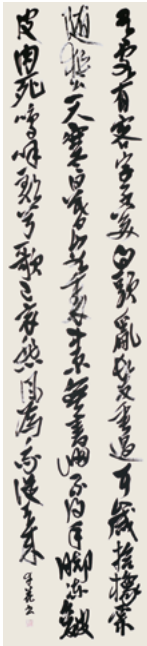 有客有客字子美白頭亂髮垂過耳歲拾橡栗
隨狙公天寒日暮山谷裏中原無書歸不得手腳凍皴
皮肉死嗚呼一歌兮歌已哀悲風為我從天來